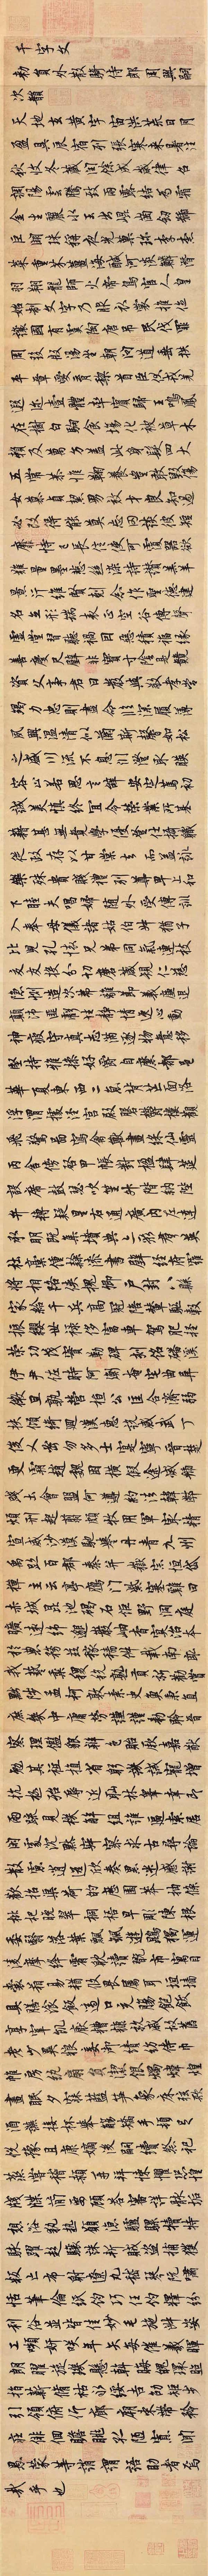 千字文
勅員外散騎侍郎周興嗣
次韻
天地玄黃宇宙洪荒日月
盈昃辰宿列張寒來暑往
秋收冬藏閏餘成歲律呂
調陽雲騰致雨露結為霜
金生麗水玉出崑岡劒號
巨闕珠稱夜光菓珍李柰
菜重芥薑海醎河淡鱗潛
羽翔龍師火帝鳥官人皇
始制文字乃服衣裳推位
讓國有虞陶唐弔民伐罪
周發殷湯坐朝問道垂拱
平章愛育黎首臣伏戎羌
遐迩壹體率賓歸王鳴鳳
在樹白駒食場化被草木
賴及萬方盖此身髮四大
五常恭惟鞠養豈敢毀傷
女慕貞潔男效才良知過
必改得能莫忘罔談彼短
靡恃己長信使可覆器欲
難量墨悲絲染詩讚羔羊
景行維賢剋念作聖德建
名立形端表正空谷傳聲
虛堂習聽禍因惡積福緣
善慶尺璧非寶寸陰是競
資父事君曰嚴與敬孝當
竭力忠則盡命臨深履薄
夙興溫凊似蘭斯馨如松
之盛川流不息淵澄取暎
容止若思言辭安定篤初
誠美慎終宜令榮業所基
藉甚無竟學優登仕攝職
從政存以甘棠去而益詠
樂殊貴賤禮別尊卑上和
下睦夫唱婦隨外受傅訓
入奉母儀諸姑伯叔猶子
比兒孔懷兄弟同氣連枝
交友投分切磨箴規仁慈
隱惻造次弗離節義廉退
顛沛匪虧性靜情逸心動
神疲守真志滿逐物意移
堅持雅操好爵自縻都邑
華夏東西二京背芒面洛
浮渭據涇宮殿盤欝樓觀
飛驚圖寫禽獸畫綵仙靈
丙舍傍啟甲帳對楹肆筵
設席鼓瑟吹笙升階納陛
弁轉疑星右通廣內左達
承明既集墳典亦聚群英
杜稾鍾隸漆書壁經府羅
將相路俠槐卿戶封八縣
家給千兵高冠陪輦驅轂
振纓世祿侈富車駕肥輕
策功茂實勒碑刻銘磻溪
伊尹佐時阿衡奄宅曲阜
微旦孰營桓公匡合濟弱
扶傾綺迴漢惠說感武丁
俊乂密勿多士寔寧晉楚
更霸趙魏困橫假途滅虢
踐土會盟何遵約法韓弊
煩刑起翦頗牧用軍最精
宣威沙漠馳譽丹青九州
禹跡百郡秦并嶽宗恒岱
禪主云亭鴈門紫塞雞田
赤城昆池碣石鉅野洞庭
曠遠綿邈巖岫杳冥治本
於農務茲稼穡俶載南畝
我藝黍稷稅熟貢新勸賞
黜陟孟軻敦素史魚秉直
庶幾中庸勞謙謹勑聆音
察理鑑貌辨色貽厥嘉猷
勉其祗植省躬譏誡寵增
抗極殆辱近恥林皋幸即
兩疏見機解組誰逼索居
閑處沉默寂寥求古尋論
散慮逍遙欣奏累遣慼謝
歡招渠荷的歷園莽抽條
枇杷晚翠梧桐早凋陳根
委翳落葉飄颻遊鵾獨運
凌摩絳霄耽讀翫市寓目
囊箱易輶攸畏屬耳垣牆
具膳飡飯適口充腸飽飫
享宰飢厭糟糠親戚故舊
老少異糧妾御績紡侍巾
帷房紈扇圓潔銀燭煒煌
晝眠夕寐藍笋象床弦歌
酒讌接杯舉觴矯手頓足
悅豫且康嫡後嗣續祭祀
蒸嘗稽顙再拜悚懼恐惶
牋牒簡要顧答審詳骸垢
想浴執熱願涼驢騾犢特
駭躍超驤誅斬賊盜捕獲
叛亡布射遼丸嵇琴阮嘯
恬筆倫紙鈞巧任釣釋紛
利俗並皆佳妙毛施淑姿
工顰妍笑年矢每催羲暉
朗曜琁璣懸斡晦魄環照
指薪脩祜永綏吉劭矩步
引領俯仰廊廟束帶矜
莊徘徊瞻眺孤陋寡聞
愚蒙等誚謂語助者焉
哉乎也